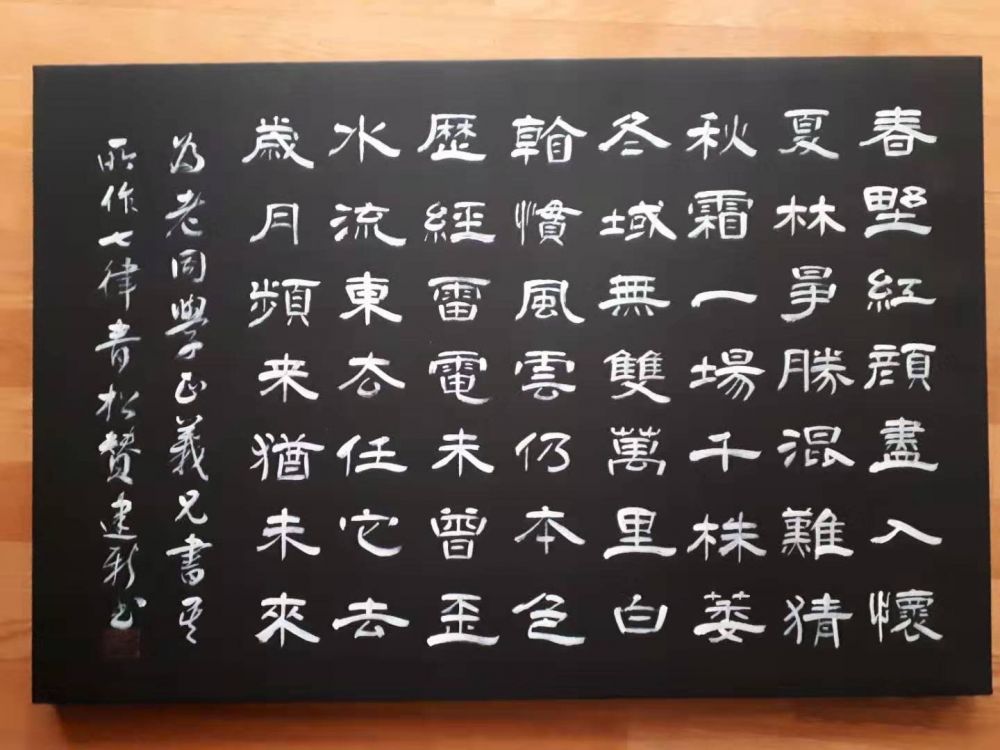 春野紅顔盡入懷
夏林爭勝混難猜
秋霜一場千株萎
冬域無雙萬里白
朝慣風雲仍本色
歷經雷電未曾歪
水流東去任它去
歲月頻来猶未來
为老同學正義兄書其
所作七律青松贊 建新书